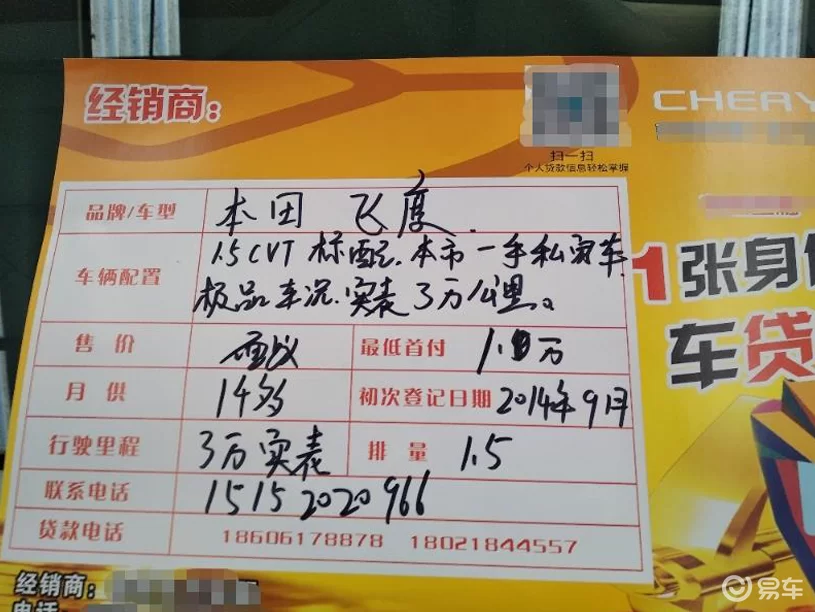 经销商:
CHERY
扫一扫
个人贷款信息轻松掌握
品牌/车型 本田 飞度.
车辆配置 1.5CVT 标配.本市一手私家车
极品车况.实表3万公里。
售价 面议 最低首付 1.0万
月供 14多 初次登记日期 2014年9月
行驶里程 3万实表 排量 1.5
联系电话 15152020966
贷款电话 18606178878 18021844557
1张身
车贷
经销商:
电话
易车